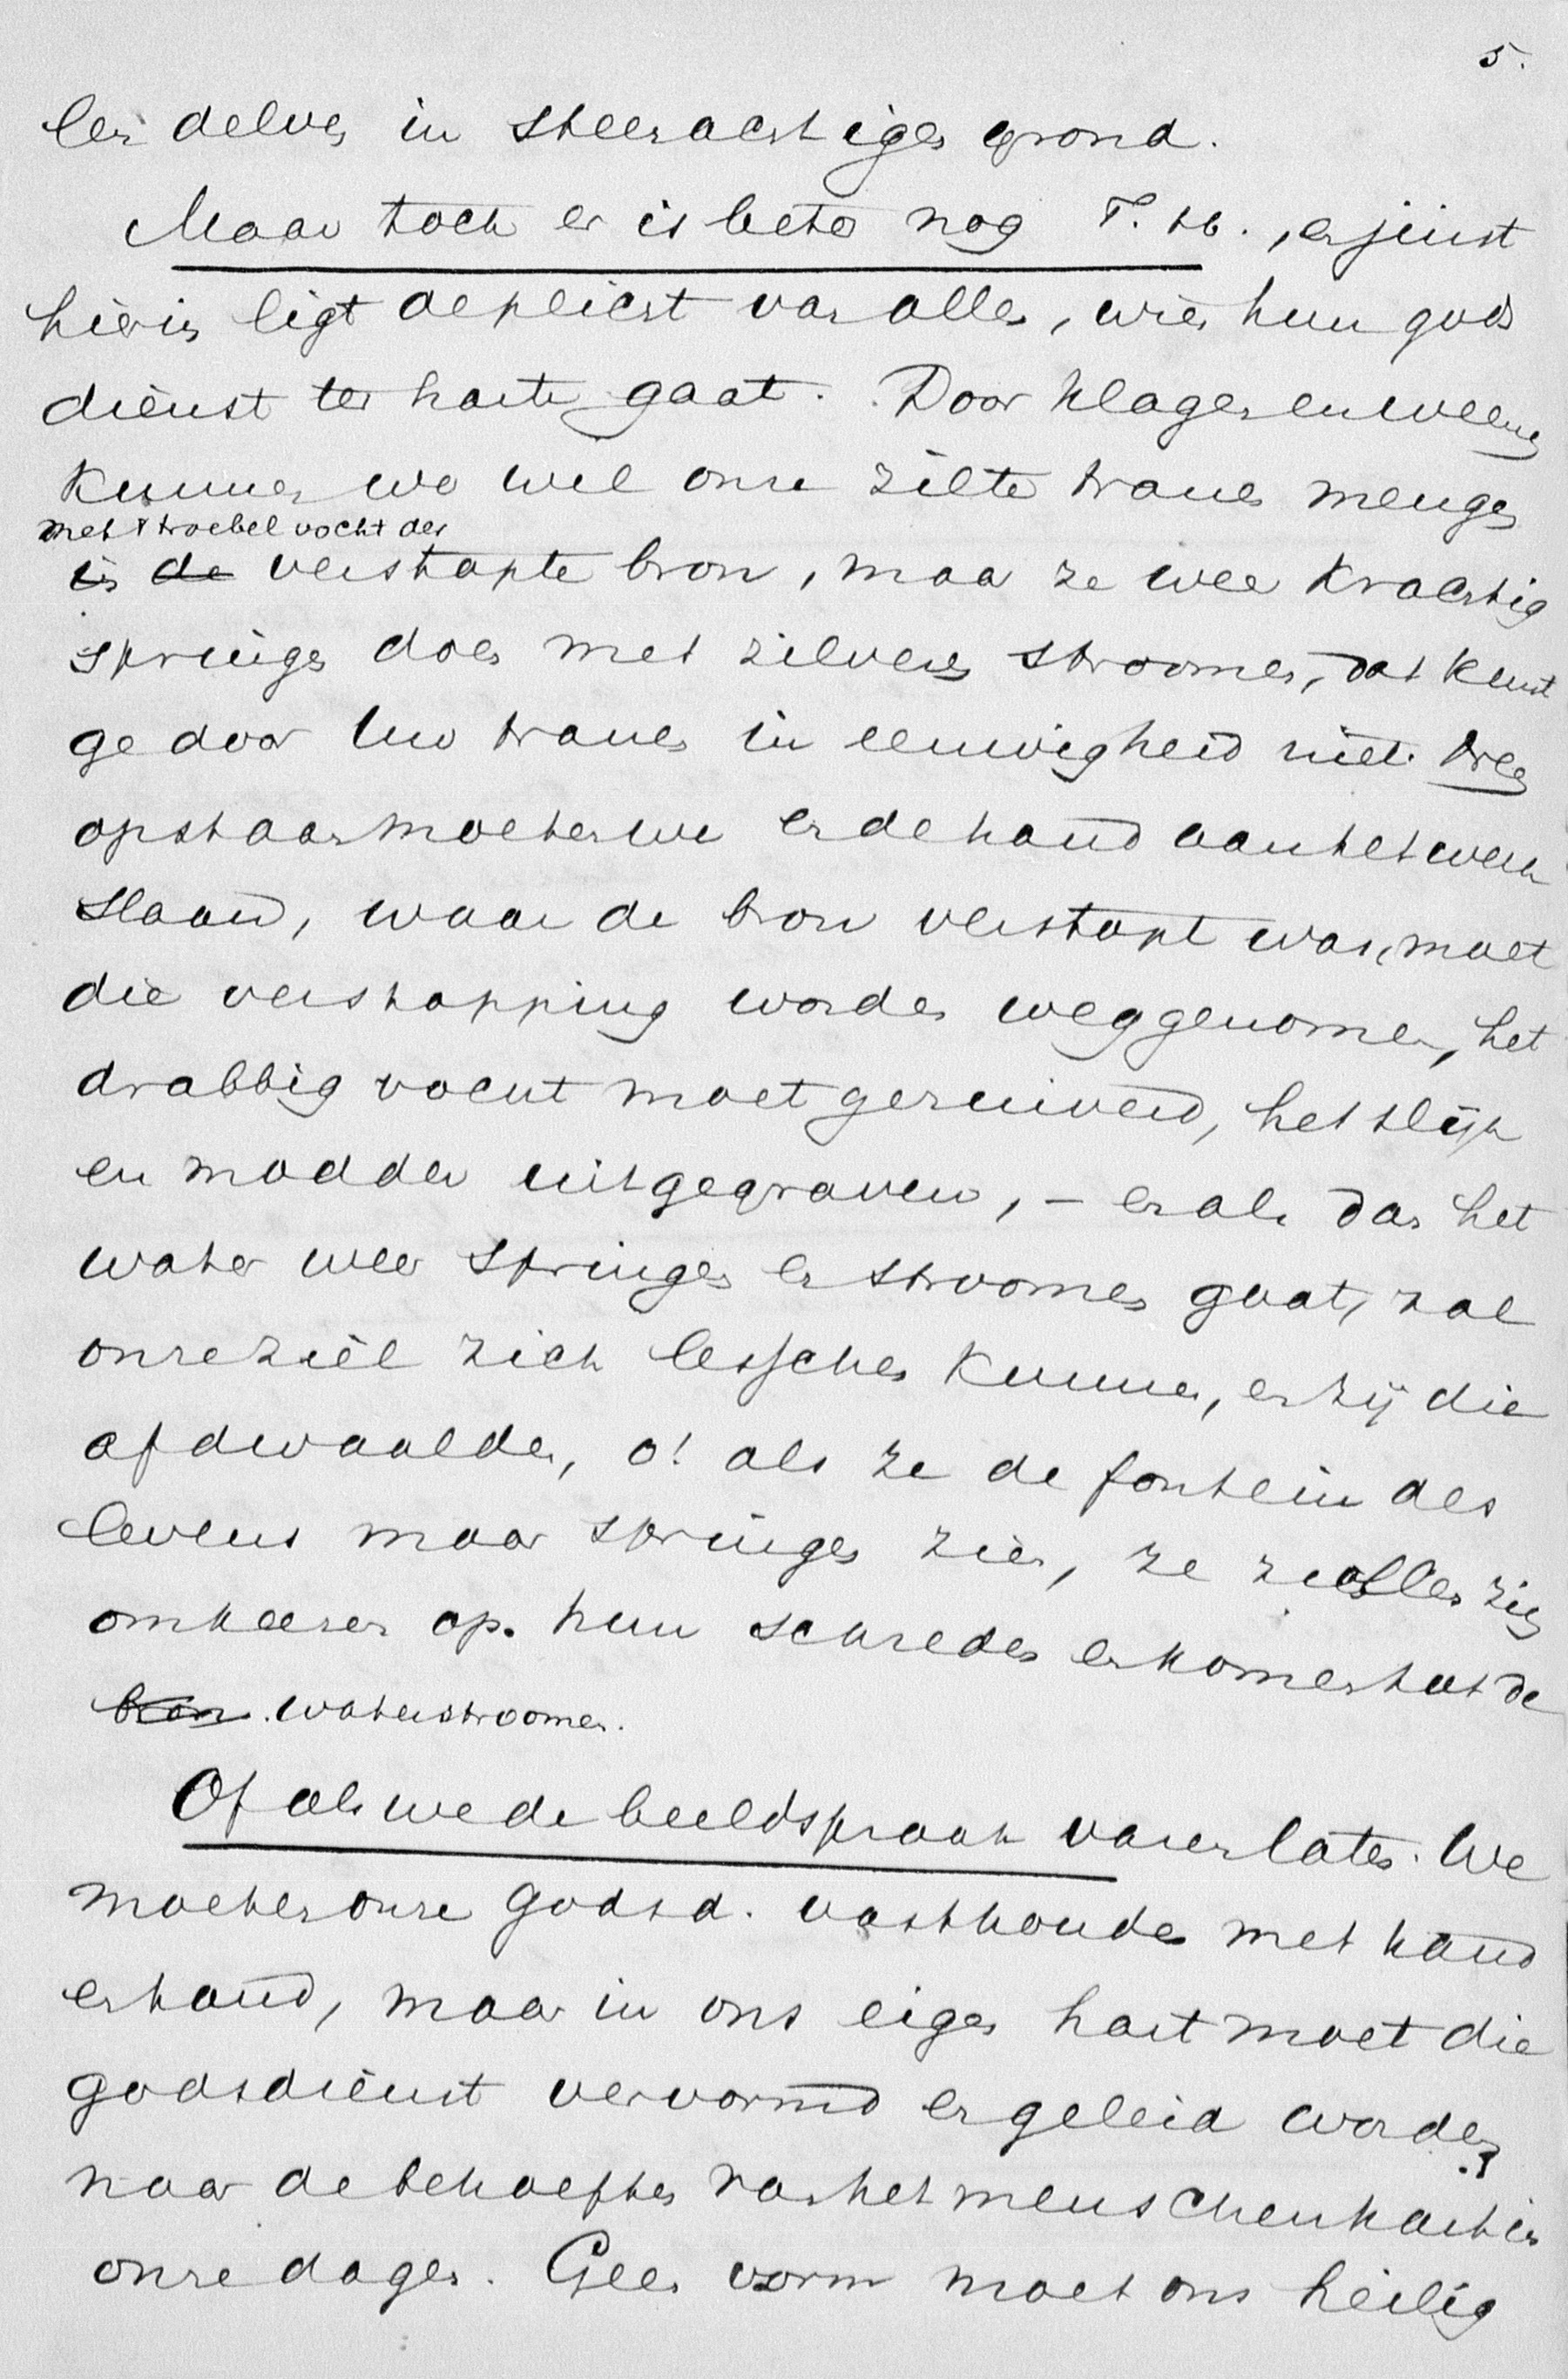 5.
len delven in steenachtigen grond.
Maar toch er is beter nog T. H., en juist
hierin ligt de plicht van allen, wien hun gods
dienst ter harte gaat. Door klagen en weenen
kunnen we wel onze zilte tranen mengen
met 't troebel vocht der
in de verstopte bron, maar ze weer krachtig
springen doen met zilveren stroomen, dat kunt
ge door Uw tranen in eeuwigheid niet. Neen
opstaan moeten we en de hand aan het werk
slaan, waar de bron verstopt was, moet
die verstopping worden weggenomen, het
drabbig vocht moet gezuiverd, het slijk
en modder uitgegraven, - en als dan het
water weer springen en stroomen gaat, zal
onze ziel zich lesschen kunnen, en zij die
afdwaalden, o! als ze de fontein des
levens maar springen zien, ze zullen zich
omkeeren op hun schreden en komen tot de
bron. waterstroomen.
Of als we de beeldspraak varen laten. We
moeten onze godsd. vasthouden met hand
en tand, maar in ons eigen hart moet die
godsdienst vervormd en geleid worden
naar de behoeften van het menschenhart in
onze dagen. Geen vorm moet ons heilig